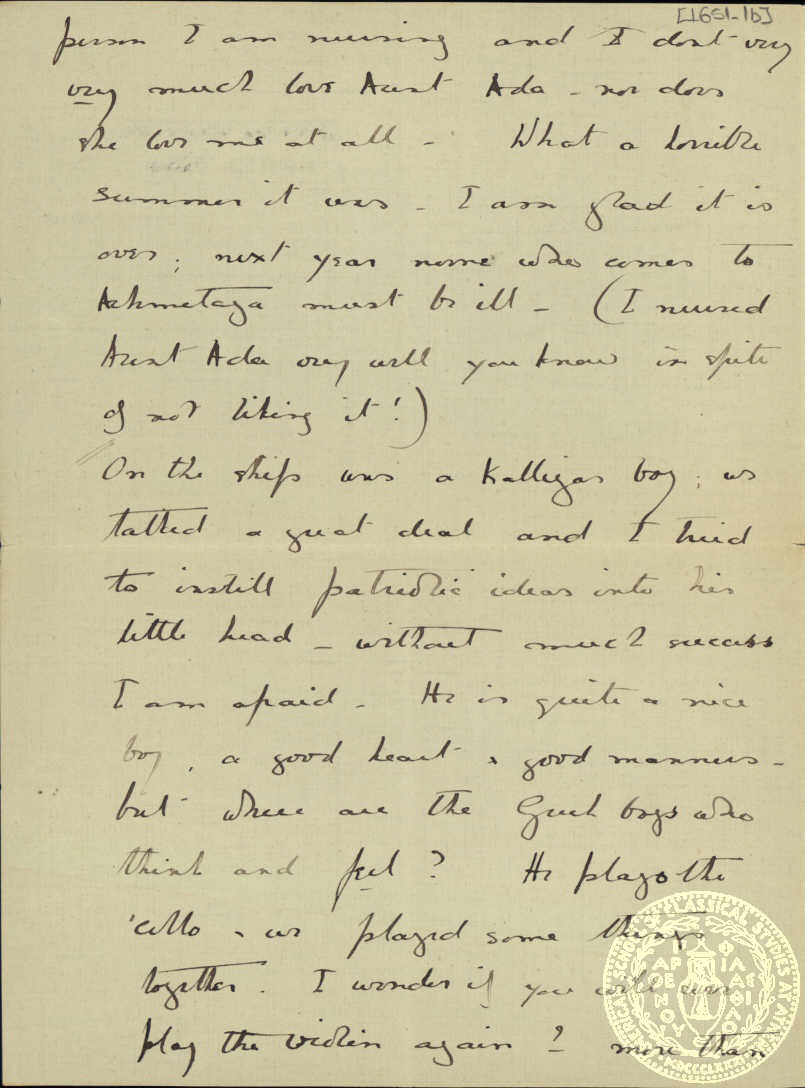 [1651-1b]
person I am nursing and I dont very
very much love Aunt Ada - nor does
she love me at all - What a horrible
summer it was - I am glad it is
over; next year nome who comes to
Achmetaga must be ill - (I nursed
Aunt Ada very well you know in spite
of not liking it!)
On the ship was a Kalligas boy; we
talked a great deal and I tried
to instill patriotic ideas into his
little head - without much success
I am afraid - He is quite a nice
boy, a good heart & good manners -
but where are the Greek boys who
think and feel? He plays the
'cello & we played some things
together. I wonder if you will ever
play the violin again? more than
AMERICAN SCHOOL OF CLASSICAL STUDIES AT ATHENS